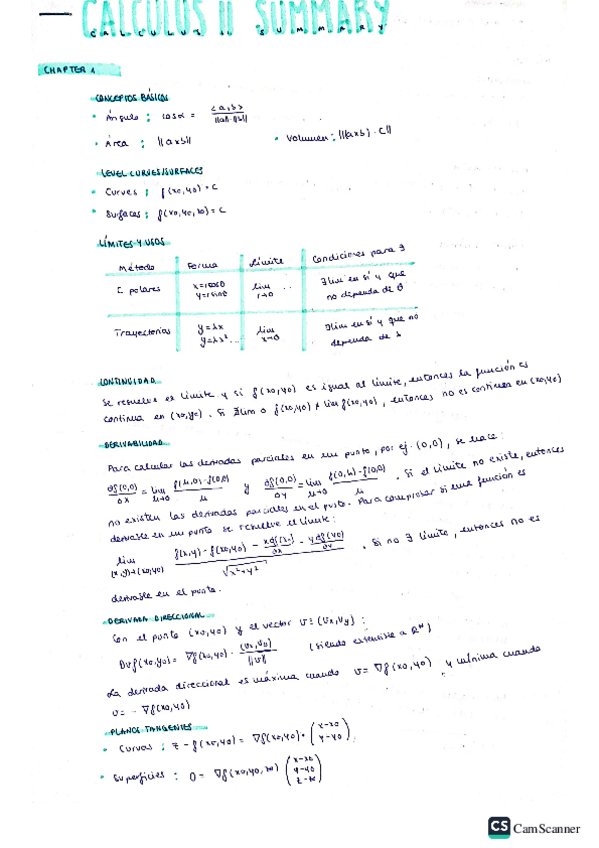 CALCULUS II SUMMARY
CALCULUS II SUMMARY
CHAPTER 1
CONCEPTOS BÁSICOS
• Ángulo : cosα = <a,b> / ||a||·||b||
• Área : ||axb||
• Volumen : ||(axb)·c||
LEVEL CURVES/SURFACES
• Curves : f(x0,y0) = C
• Surfaces : f(x0,y0,z0) = C
LÍMITES Y USOS
Método Forma Límite Condiciones para ∃
C polares x=rcosθ y=rsinθ lim r→0 ... ∃lim en sí y que no dependa de θ
Trayectorias y=λx y=λx² ... lim x→0 ∃lim en sí y que no dependa de λ
CONTINUIDAD
Se resuelve el límite y si f(x0,y0) es igual al límite, entonces la función es
continua en (x0,y0). Si ∄lim o f(x0,y0) ≠ lim f(x0,y0), entonces no es continua en (x0,y0)
DERIVABILIDAD
Para calcular las derivadas parciales en un punto, por ej. (0,0), se hace:
∂f(0,0)/∂x = lim h→0 f(h,0)-f(0,0) / h y ∂f(0,0)/∂y = lim h→0 f(0,h)-f(0,0) / h . Si el límite no existe, entonces
no existen las derivadas parciales en el punto. Para comprobar si una función es
derivable en un punto se resuelve el límite:
lim (x,y)→(x0,y0) f(x,y) - f(x0,y0) - x∂f(x0)/∂x - y∂f(y0)/∂y / √x²+y² . Si no ∃ límite, entonces no es
derivable en el punto.
DERIVADA DIRECCIONAL
Con el punto (x0,y0) y el vector v=(vx,vy) :
Dvf(x0,y0) = ∇f(x0,y0) · (vx,vy) / ||v|| (siendo extensible a Rⁿ)
La derivada direccional es máxima cuando v = ∇f(x0,y0) y mínima cuando
v = - ∇f(x0,y0)
PLANOS TANGENTES
• Curvas : z - f(x0,y0) = ∇f(x0,y0) · (x-x0 y-y0)
• Superficies : 0 = ∇f(x0,y0,z0) (x-x0 y-y0 z-z0)
CS CamScanner